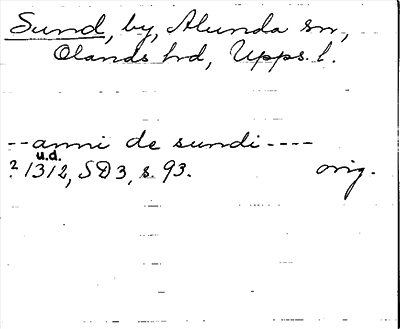 Sund, by, Alunda sn,
Olands hd, Upps. l.
--anni de sundi----
u.d.
? 1312, SD3, s. 93. orig.